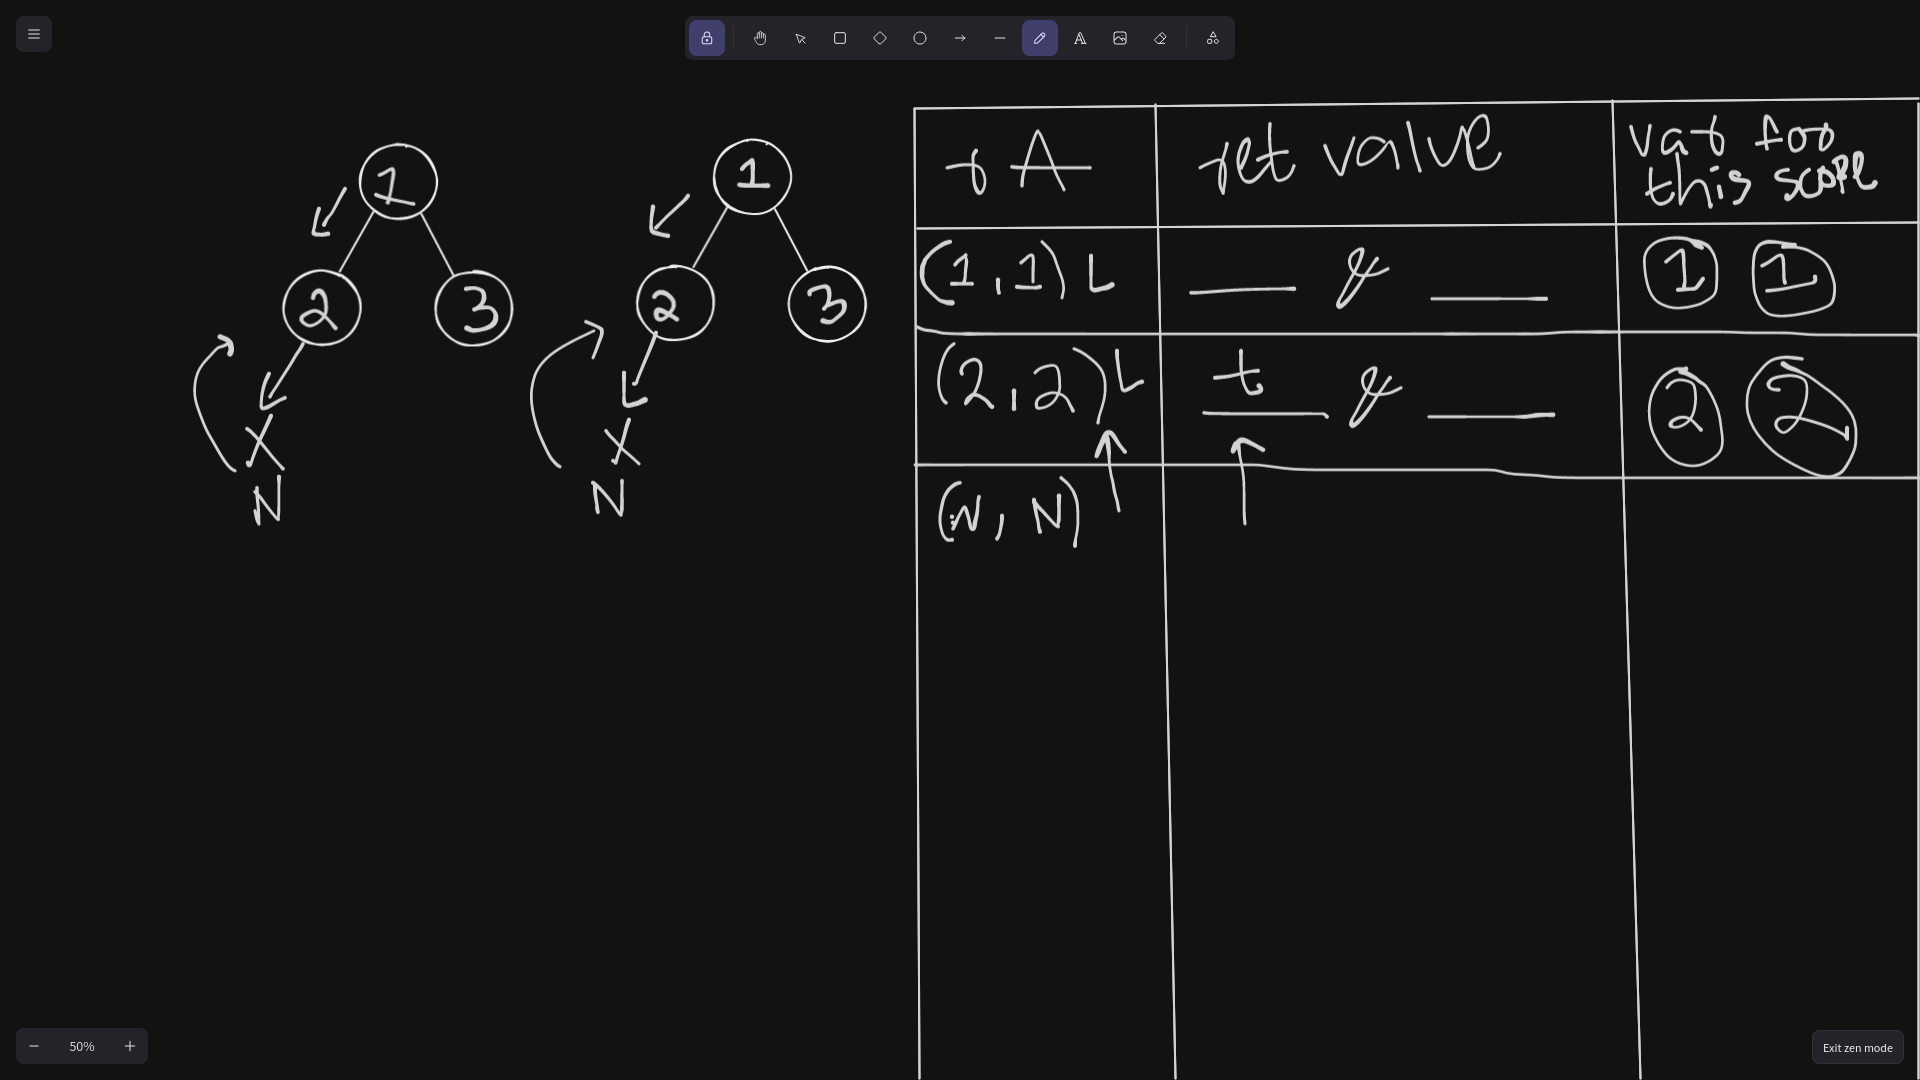 1
2 3
N
1
2 3
N
rA ret value var for this scope
(1,1) L __ & __ 1 1
(2,2) L t & __ 2 2
(N, N)
50%
Exit zen mode